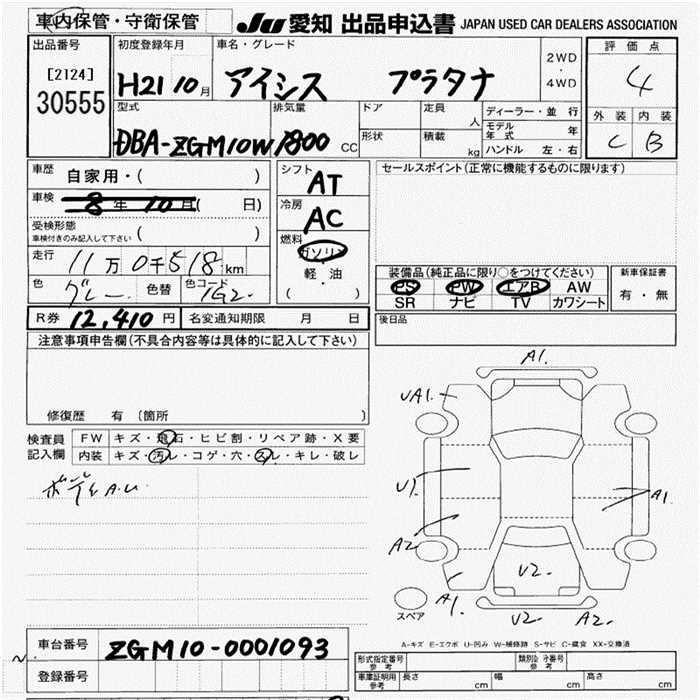 車内保管・守衛保管 JU 愛知 出品申込書 JAPAN USED CAR DEALERS ASSOCIATION
出品番号 初度登録年月 車名・グレード 2WD・4WD 評価点
[2124] 30555 H21 10月 アイシス プラタナ 4
型式 排気量 ドア 定員 人 ディーラー・並行 外装 内装
DBA-ZGM10W 1800 CC 形状 積載 kg モデル年式 年 C B
ハンドル 左・右
車歴 自家用・( ) シフト AT セールスポイント(正常に機能するものに限ります)
車検 8年 10月( 日) 冷房 AC
受検形態 車検付きのみ記入して下さい ( ) 燃料 ガソリン
走行 11万0千518km 軽・油 装備品(純正品に限り○をつけてください) 新車保証書
色 グレー 色替 色コード 1G2 ( ) PS PW エアB AW 有・無
SR ナビ TV カワシート
R券 12,410円 名変通知期限 月 日 後日品
注意事項申告欄(不具合内容等は具体的に記入して下さい)
修復歴 有 (箇所 )
検査員記入欄 FW キズ・飛石・ヒビ割・リペア跡・X要
内装 キズ・汚レ・コゲ・穴・スレ・キレ・破レ
ボディA.U
A1.
UA1.
U1
A1.
A2
U2.
A1.
スペア U2. A2.
A-キズ E-エクボ U-凹み W-補修跡 S-サビ C-腐食 XX-交換済
車台番号 ZGM10-0001093
登録番号
形式指定番号 参考 類別区分番号 参考
車庫証明用 参考 長さ cm 幅 cm 高さ cm